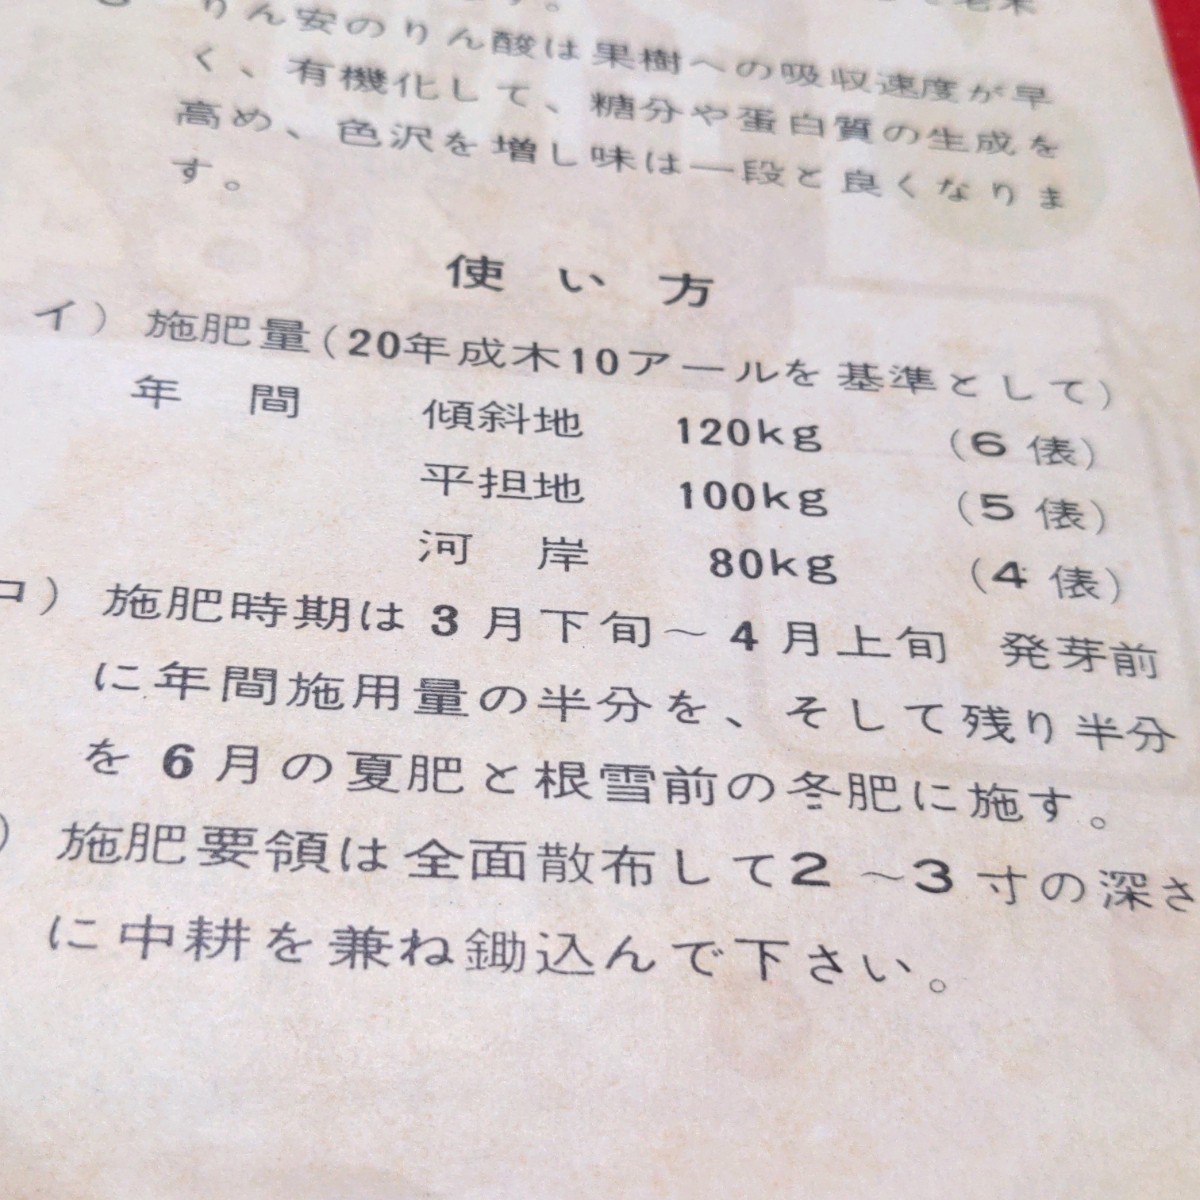 りん安のりん酸は果樹への吸収速度が早
く、有機化して、糖分や蛋白質の生成を
高め、色沢を増し味は一段と良くなりま
す。
使い方
イ）施肥量（20年成木10アールを基準として）
年間 傾斜地 120kg （6俵）
平担地 100kg （5俵）
河岸 80kg （4俵）
ロ）施肥時期は3月下旬～4月上旬 発芽前
に年間施用量の半分を、そして残り半分
を6月の夏肥と根雪前の冬肥に施す。
）施肥要領は全面散布して2～3寸の深さ
に中耕を兼ね鋤込んで下さい。